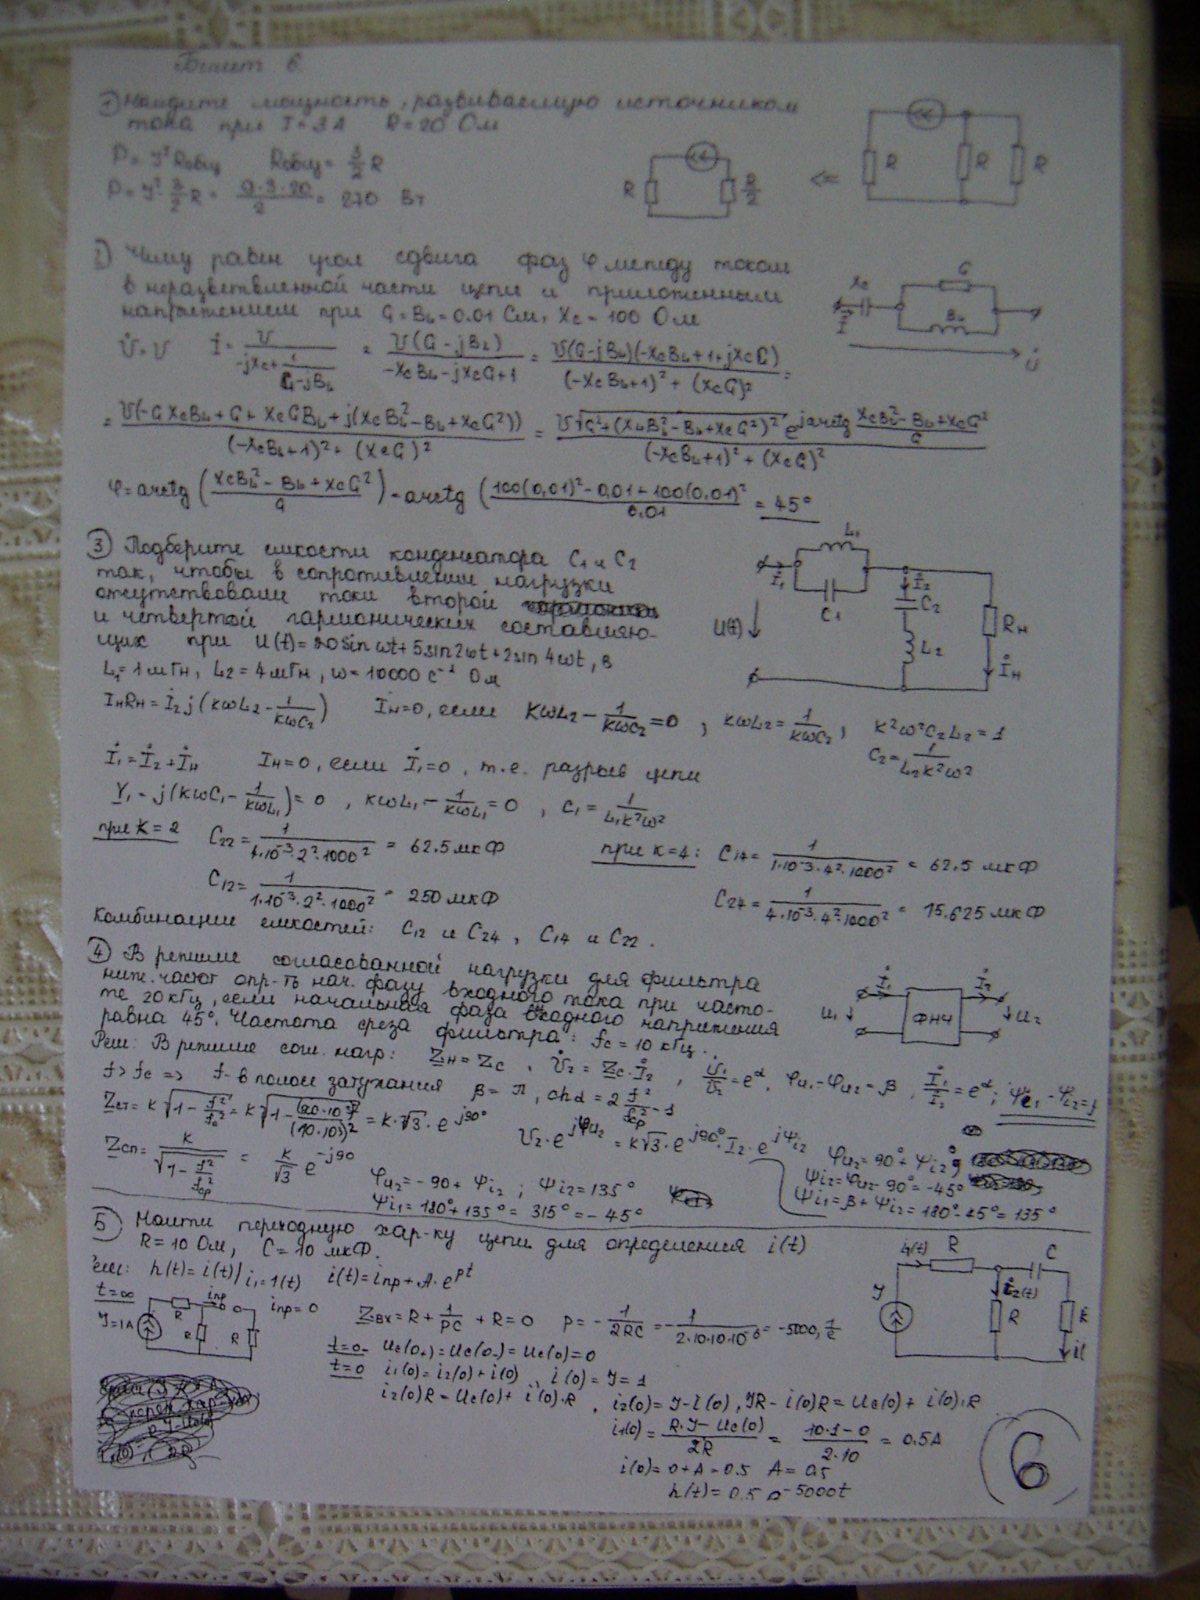 Билет 6.
① Найдите мощность, развиваемую источником
тока при J = 3 А R = 20 Ом
P = J² Rобщ Rобщ = 3/2 R
P = J² 3/2 R = 9·3·20/2 = 270 Вт
R R/2 <= R R R
2) Чему равен угол сдвига фаз φ между током
в неразветвленной части цепи и приложенным
напряжением при G = BL = 0.01 См, Xc = 100 Ом
Xc G BL İ U̇
U̇ = U İ = U/(-jXc + 1/(G-jBL)) = U(G-jBL)/(-XcBL-jXcG+1) = U(G-jBL)(-XcBL+1+jXcG)/((-XcBL+1)²+(XcG)²) =
= U(-GXcBL+G+XcGBL+j(XcBL²-BL+XcG²))/((-XcBL+1)²+(XcG)²) = U√(G²+(XLBL²-BL+XcG²)²) e^(jarctg (XcBL²-BL+XcG²)/G)/((-XcBL+1)²+(XcG)²)
φ = arctg ((XcBL²-BL+XcG²)/G) = arctg (100(0,01)²-0,01+100(0,01)²/0.01 = 45°
③ Подберите емкости конденсатора C1 и C2
так, чтобы в сопротивлении нагрузки
отсутствовали токи второй
и четвертой гармонических составляю-
щих при U(t) = 20sin ωt + 5sin2ωt + 2sin 4ωt, в
L1 = 1 мГн, L2 = 4 мГн, ω = 10000 c⁻¹ Ом
L1 İ1 C1 İ2 C2 U(t) L2 Rн İн
IнRн = İ2 j(kωL2 - 1/kωC2) İн=0, если kωL2 - 1/kωC2 = 0, kωL2 = 1/kωC2, k²ω²C2L2 = 1
C2 = 1/L2k²ω²
İ1 = İ2 + İн Iн = 0, если İ1 = 0, т.е. разрыв цепи
Y1 = j(kωC1 - 1/kωL1) = 0, kωL1 - 1/kωL1 = 0, C1 = 1/L1k²ω²
при k = 2 C22 = 1/(4·10⁻³·2²·1000²) = 62.5 мкФ при k = 4: C14 = 1/(1·10⁻³·4²·1000²) = 62.5 мкФ
C12 = 1/(1·10⁻³·2²·1000²) = 250 мкФ C24 = 1/(4·10⁻³·4²·1000²) = 15.625 мкФ
Комбинации емкостей: C12 и C24, C14 и C22.
④ В режиме согласованной нагрузки для фильтра
ниж. частот опр-ть нач. фазу входного тока при часто-
те 20 кГц, если начальная фаза входного напряжения
равна 45°. Частота среза фильтра: fc = 10 кГц.
İ1 İ2 U1 ФНЧ U2
Реш: В режиме сог. нагр: Zн = Zc, U̇2 = Zc·İ2, U̇1/U̇2 = e^α, φu1 - φu2 = β, İ1/İ2 = e^α; ψi1 - ψi2 = β
f > fc => f - в полосе затухания β = π, chα = 2 f²/fcp² - 1
Zcт = k√(1 - f²/fc²) = k√(1 - (20·10³)²/(10·10³)²) = k·√3·e^(j90°)
U2·e^(jφu2) = k√3·e^(j90°)·I2·e^(jψi2)
φu2 = 90° + ψi2,
Zcп = k/√(1 - f²/fcp²) = k/√3 e^(-j90)
ψi2 = φu2 - 90° = -45°
φu2 = -90 + ψi2; ψi2 = 135°
ψi1 = β + ψi2 = 180° - 45° = 135°
ψi1 = 180° + 135° = 315° = -45°
5) Найти переходную хар-ку цепи для определения i(t)
R = 10 Ом, C = 10 мкФ.
i1(t) R C J i2(t) R R
h(t) = i(t)/i1=1(t) i(t) = iпр + A·e^(pt)
t = ∞ iпр R J = 1A R R iпр = 0
Zвх = R + 1/pC + R = 0 p = -1/2RC = -1/(2·10·10·10⁻⁶) = -5000, 1/c
t = 0- Uc(0+) = Uc(0-) = Uc(0) = 0
t = 0 i1(0) = i2(0) + i(0), i(0) = J = 1
i2(0)R = Uc(0) + i(0)·R, i2(0) = J - i(0), JR - i(0)R = Uc(0) + i(0)·R
i1(0) = (R·J - Uc(0))/2R = (10·1 - 0)/(2·10) = 0.5A
i(0) = 0 + A = 0.5 A = 0.5
h(t) = 0.5 e^(-5000t)
6